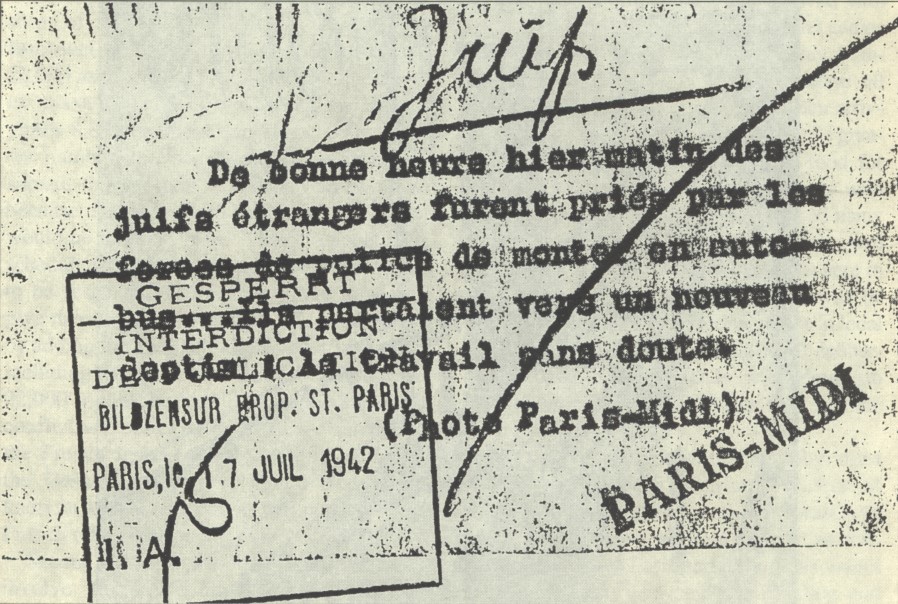 Juifs
De bonne heure hier matin des
juifs étrangers furent priés par les
forces de police de monter en auto-
bus...ils partaient vers un nouveau
destin : le travail sans doute.
(Photo Paris-Midi)
PARIS-MIDI
GESPERRT
INTERDICTION
DE PUBLICATION
BILDZENSUR PROP. ST. PARIS
PARIS, le 17 JUIL 1942
I. A.